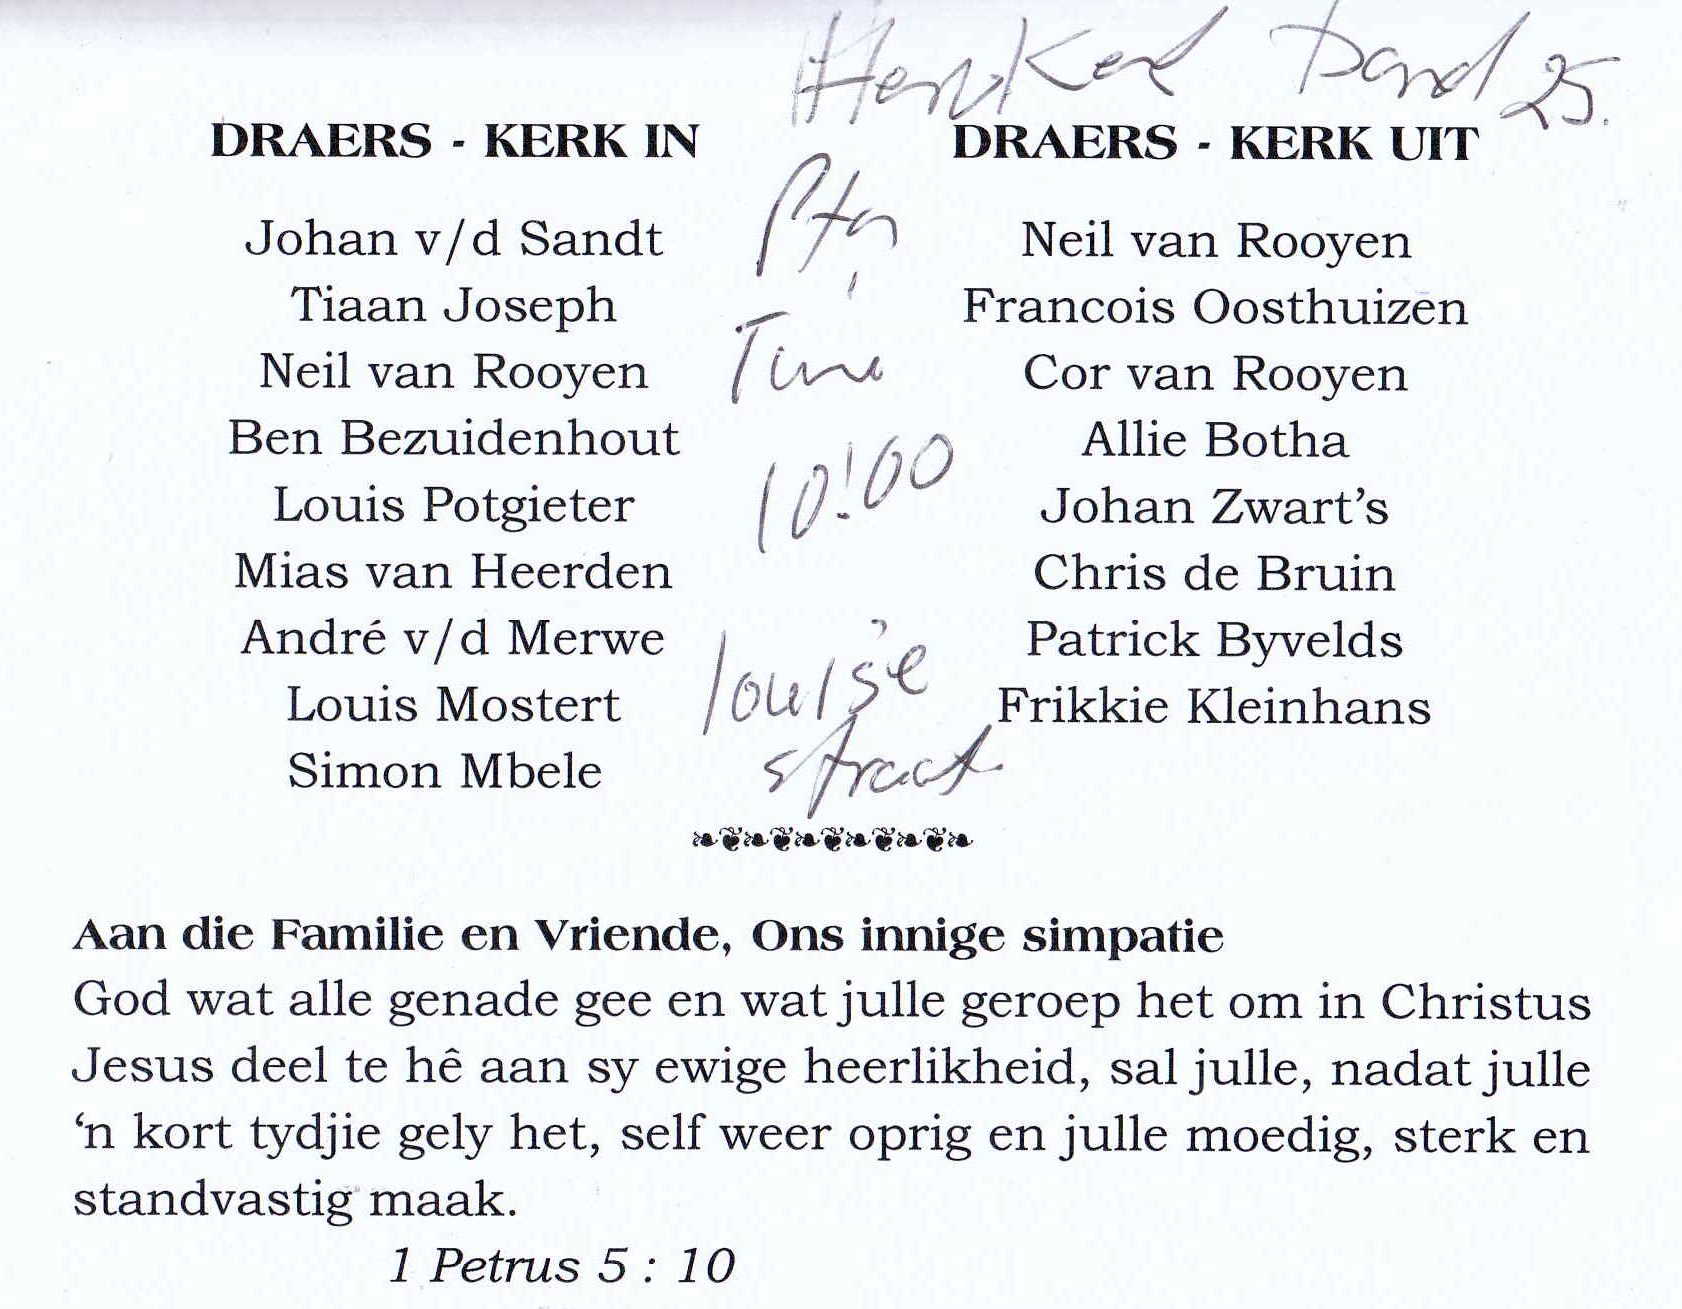 DRAERS - KERK IN
Johan v/d Sandt
Tiaan Joseph
Neil van Rooyen
Ben Bezuidenhout
Louis Potgieter
Mias van Heerden
André v/d Merwe
Louis Mostert
Simon Mbele
25.
Pta
Time
10:00
louise
straat
DRAERS - KERK UIT
Neil van Rooyen
Francois Oosthuizen
Cor van Rooyen
Allie Botha
Johan Zwart’s
Chris de Bruin
Patrick Byvelds
Frikkie Kleinhans
Aan die Familie en Vriende, Ons innige simpatie
God wat alle genade gee en wat julle geroep het om in Christus
Jesus deel te hê aan sy ewige heerlikheid, sal julle, nadat julle
‘n kort tydjie gely het, self weer oprig en julle moedig, sterk en
standvastig maak.
1 Petrus 5 : 10